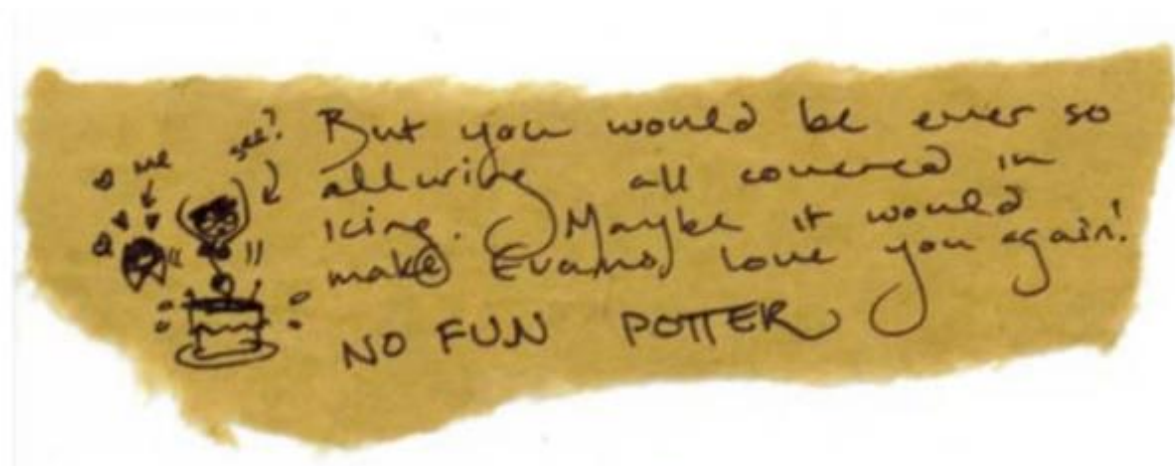 me see?
But you would be ever so
alluring all covered in
icing. Maybe it would
make Evans love you again!
NO FUN POTTER